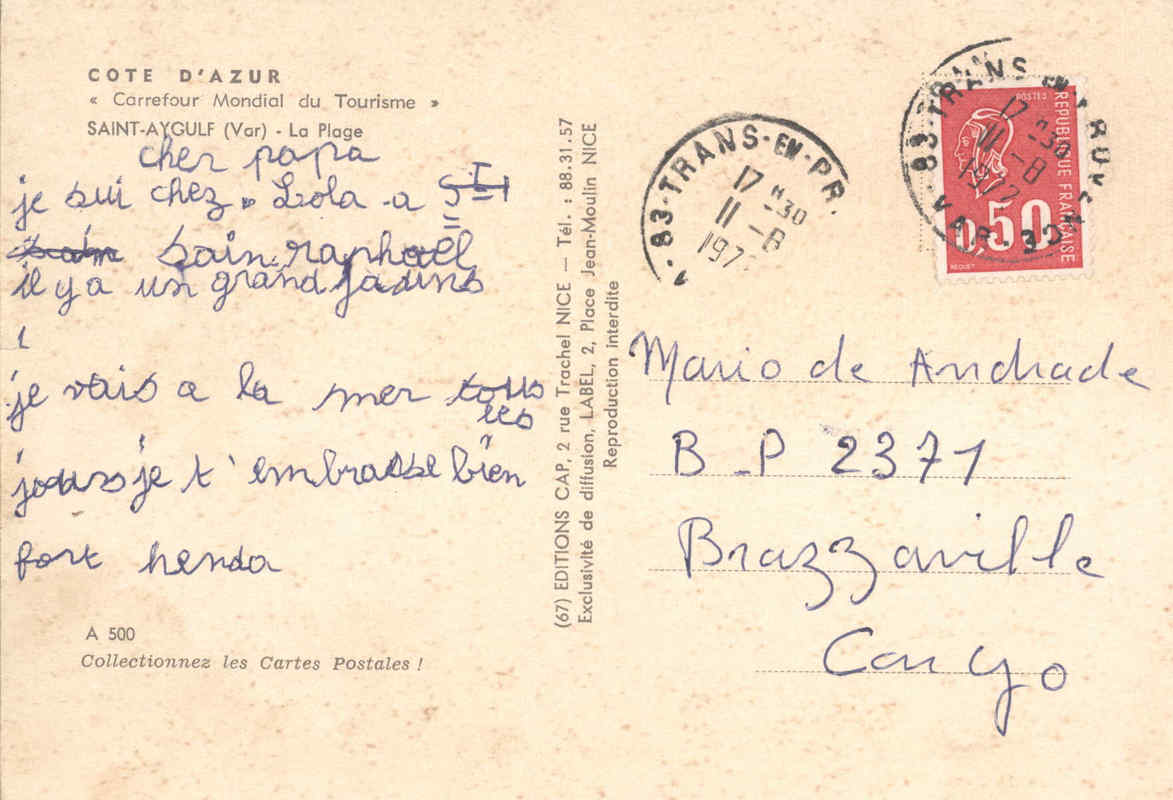 COTE D'AZUR
« Carrefour Mondial du Tourisme »
SAINT-AYGULF (Var) - La Plage
cher papa
je sui chez Lola a
Sain raphaël
il y a un grand jadins
je vais a la mer tous
les
jours je t'embrasse bien
fort henda
A 500
Collectionnez les Cartes Postales !
(67) EDITIONS CAP, 2 rue Trachel NICE — Tél. : 88.31.57
Exclusivité de diffusion, LABEL, 2, Place Jean-Moulin NICE
Reproduction interdite
83-TRANS-EN-PR.
17 H-30
11 -8
197
83-TRANS-EN-PROVENCE
17 H-30
11 -8
1972
VAR
POSTES
REPUBLIQUE FRANÇAISE
0,50
BEQUET
Mario de Andrade
B-P 2371
Brazzaville
Congo